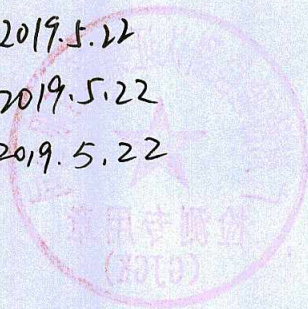 2019.5.22
2019.5.22
2019.5.22
检测专用章
(GJGK)